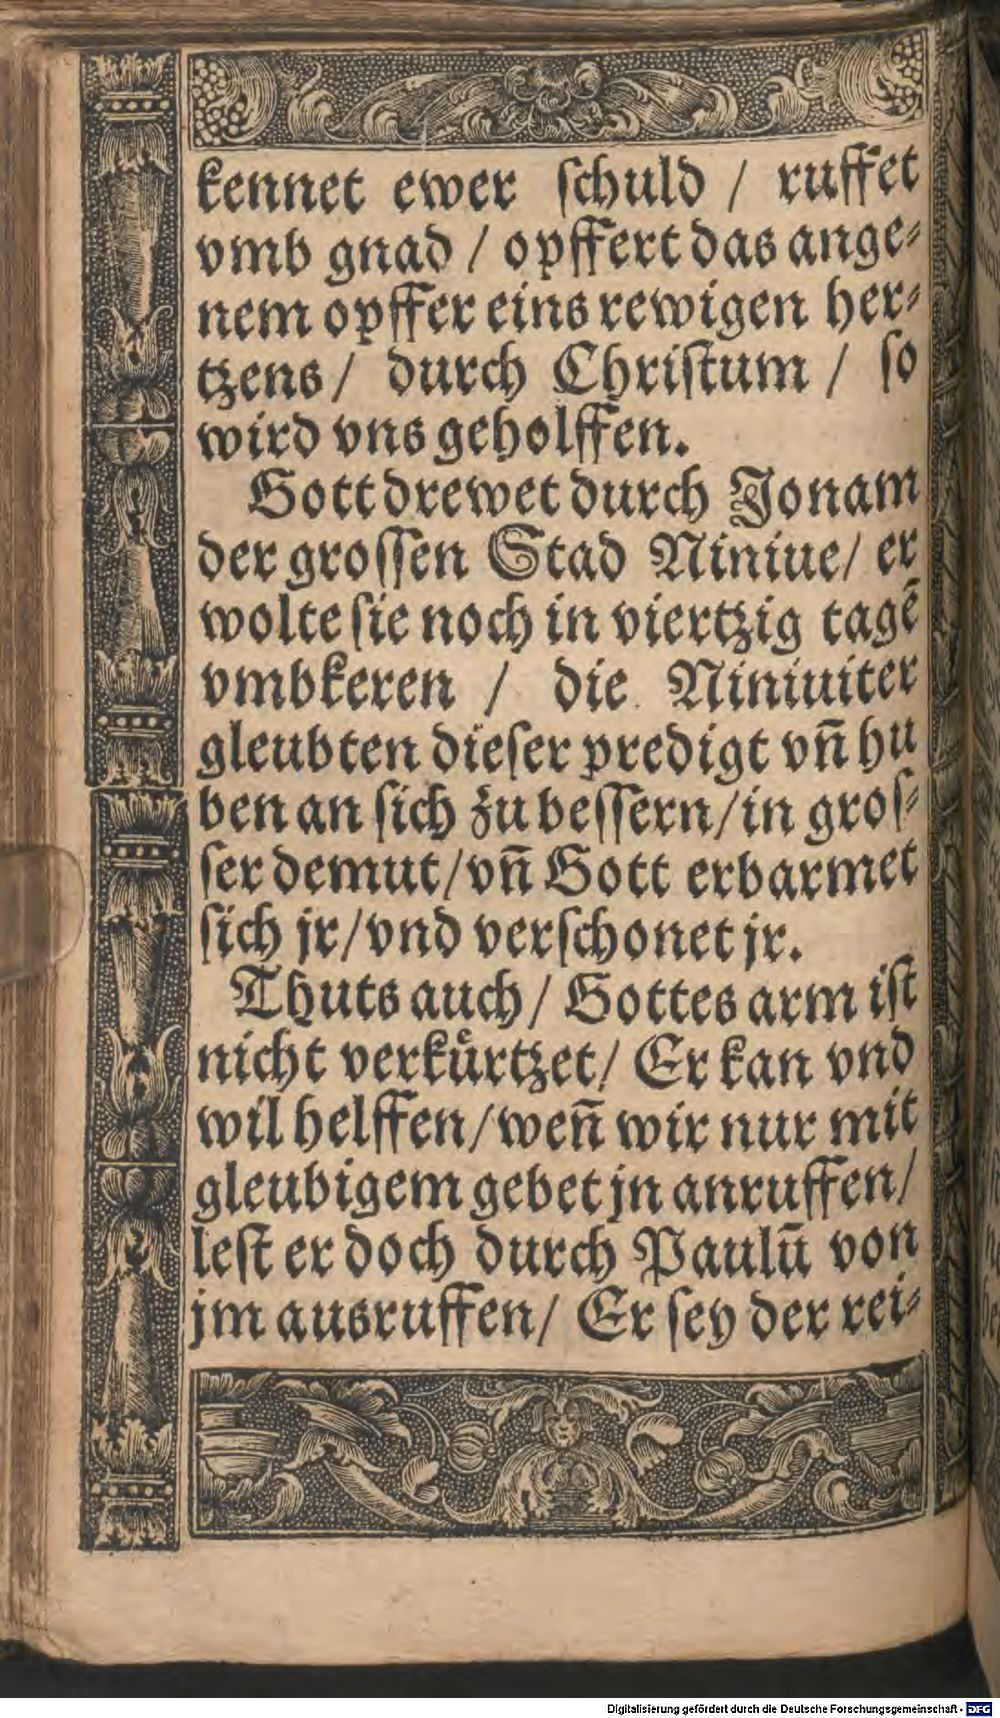 kennet ewer ſchuld / ruffet
vmb gnad / opffert das ange⸗
nem opffer eins rewigen her⸗
tzens / durch Chriſtum / ſo
wird vns geholffen.
Gott drewet durch Jonam
der groſſen Stad Niniue / er
wolte ſie noch in viertzig tagē
vmbkeren / die Niniuiter
gleubten dieſer predigt vn̄ hu
ben an ſich zu beſſern / in groſ⸗
ſer demut / vn̄ Gott erbarmet
ſich jr / vnd verſchonet jr.
Thuts auch / Gottes arm iſt
nicht verkuͤrtzet / Er kan vnd
wil helffen / wen̄ wir nur mit
gleubigem gebet jn anruffen /
leſt er doch durch Paulū von
jm ausruffen / Er ſey der rei⸗
Digitalisierung gefördert durch die Deutsche Forschungsgemeinschaft - DFG